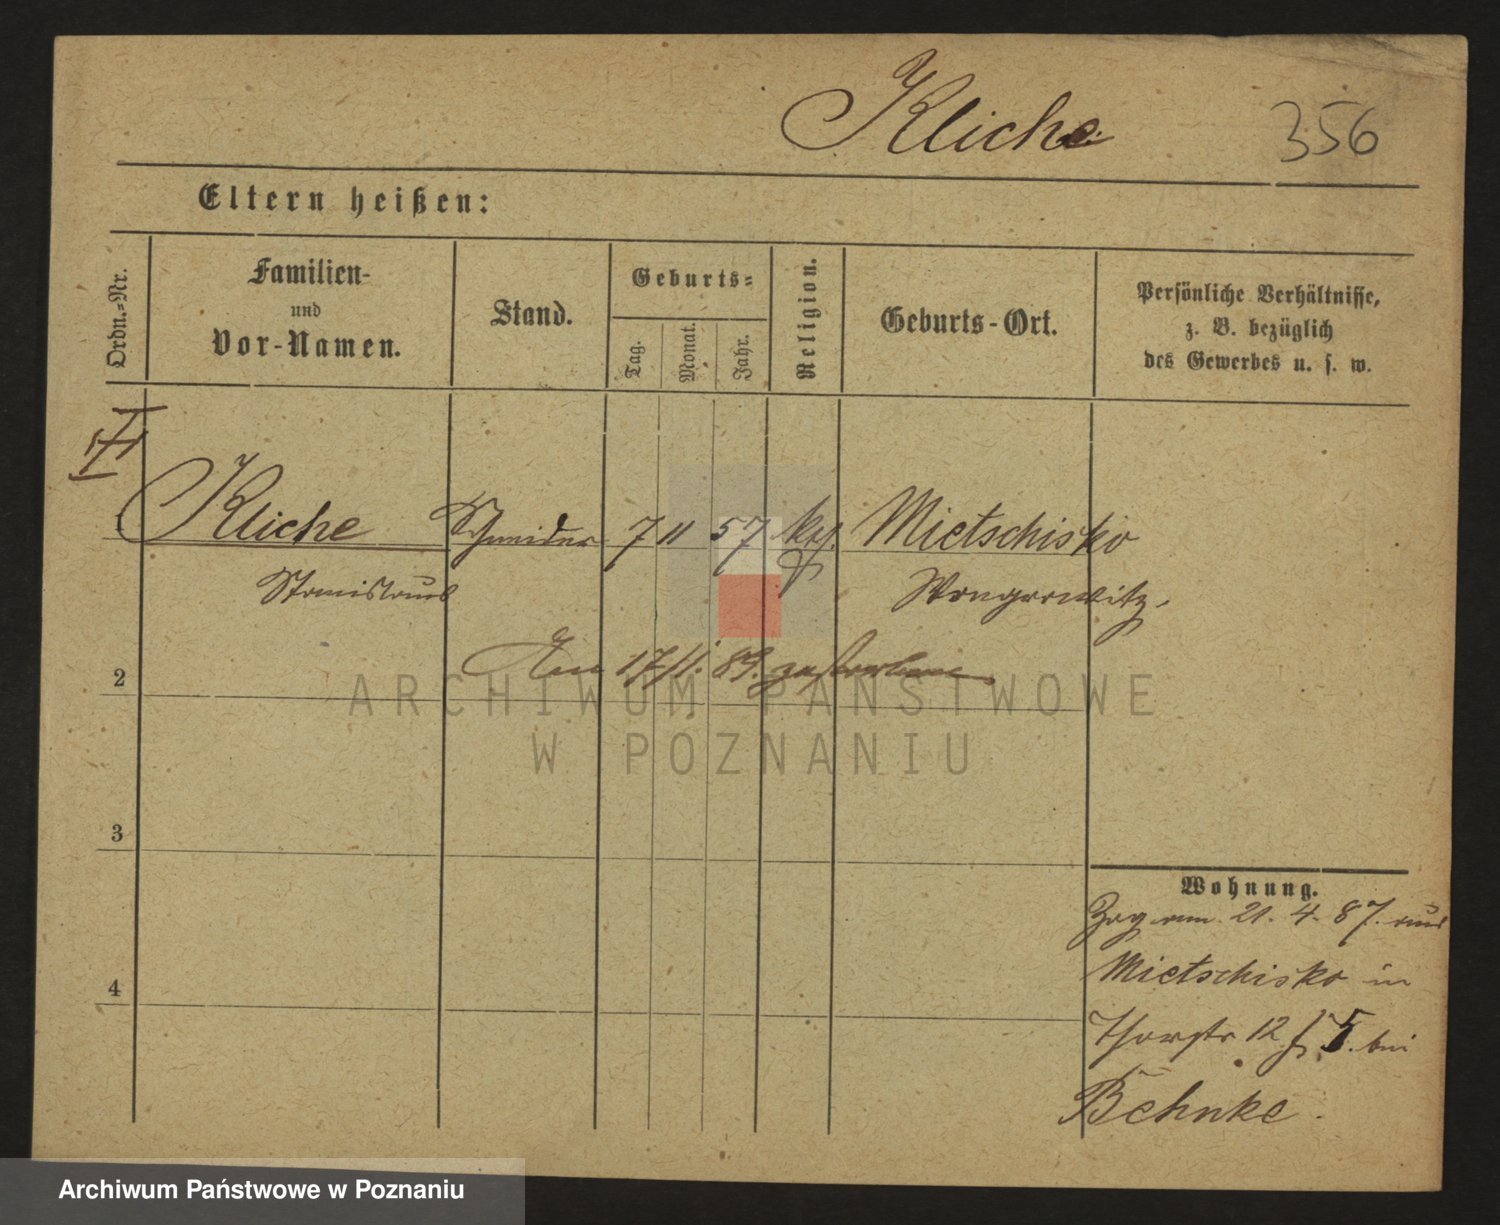 Kliche 356
Eltern heißen:
Ordn.-Nr. Familien- und Vor-Namen. Stand. Geburts- Tag. Monat. Jahr. Religion. Geburts-Ort. Persönliche Verhältnisse, z. B. bezüglich des Gewerbes u. s. w.
1 Kliche Schneider 7 11 57 kth. Mietschisko
Stanislaus Wongrowitz.
Am 17/1. 89. gestorben
2
3
4
Wohnung.
Zog am 21. 4. 87. aus
Mietschisko in
Thorstr 12 5. bei
Behnke.
ARCHIWUM PAŃSTWOWE
W POZNANIU
Archiwum Państwowe w Poznaniu